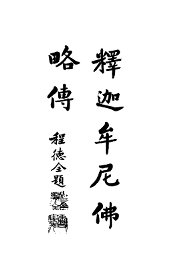 釋迦牟尼佛
略傳
程德全題